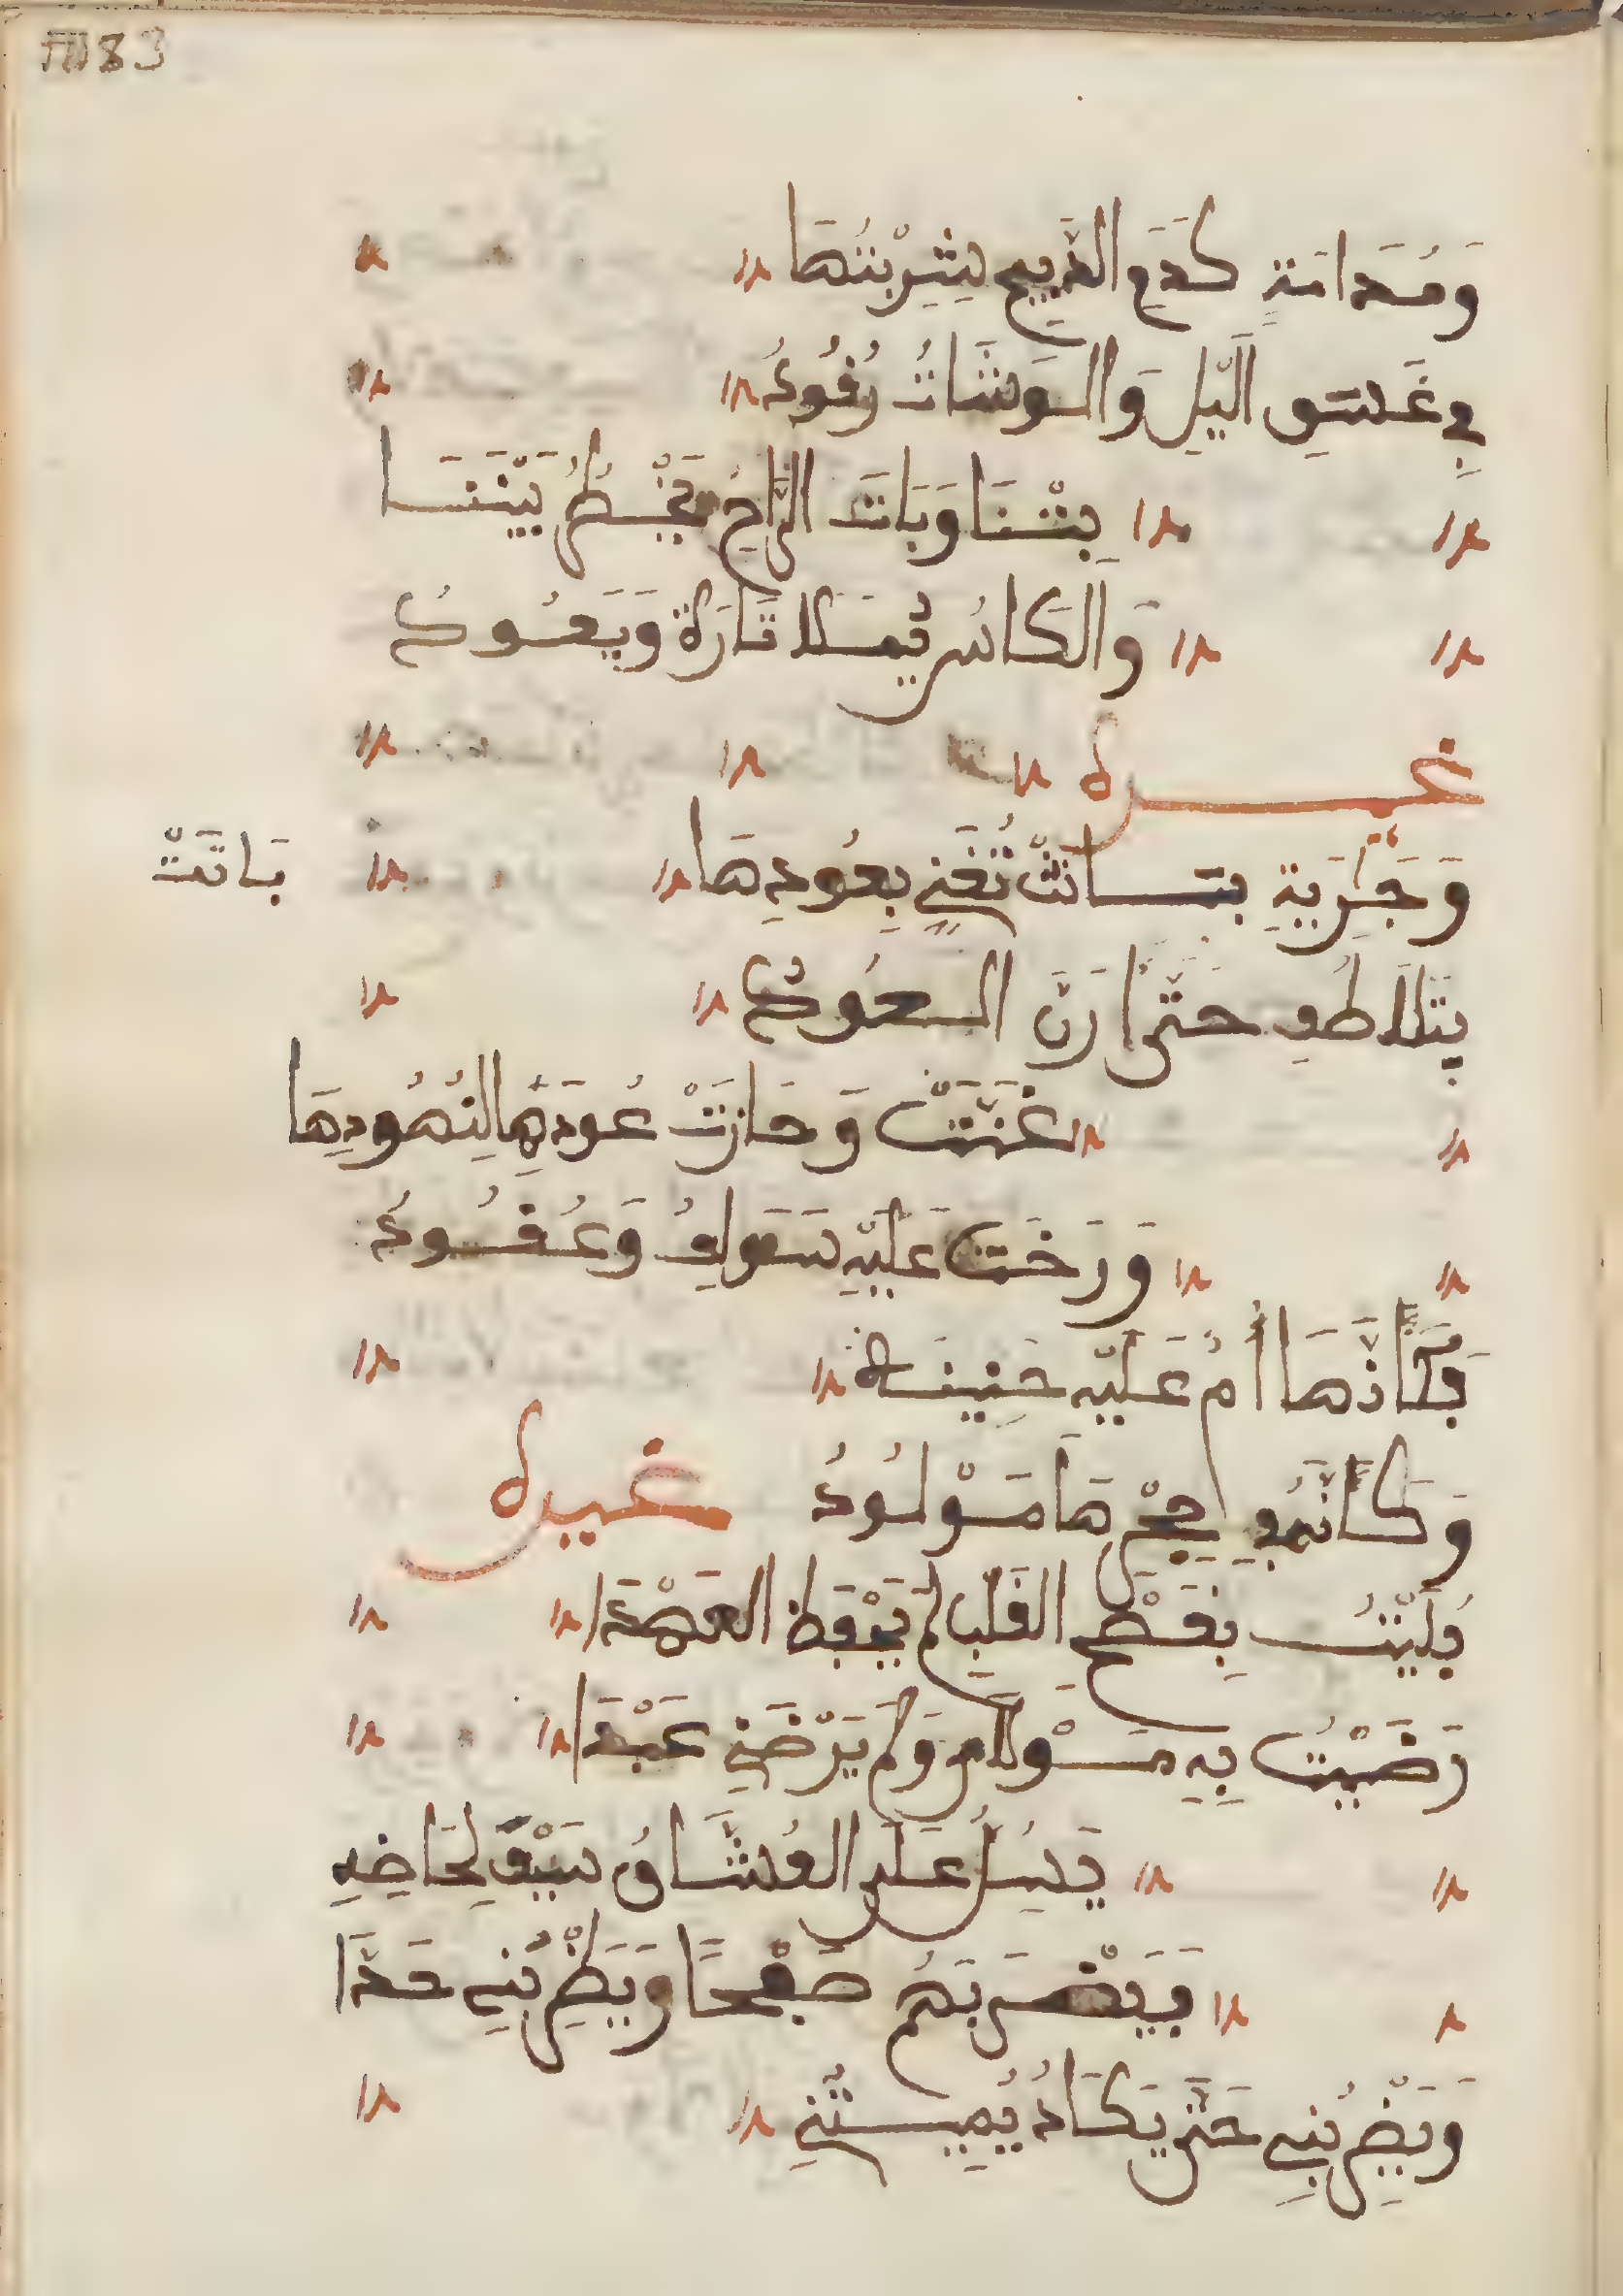 83
وَمُدَامَةٍ كَدَمِ الذَّبِيحِ شَرِبْتُهَا
فِي غَسَقِ الَّيْلِ وَالوَشَاتُ رُقُودُ
بِتْنَا وَبَاتَ الرَّاحُ يَخْطُرُ بَيْنَنَا
وَالكَاسُ يُمْلَا تَارَةً وَيَعُودُ
غيره
وَجَرِيَةٍ بَاتَتْ تُغَنِّي بِعُودِهَا
بَاتَتْ
يتلاطف حَتَّى رَنَّ العُودُ
غَنَّتْ وَحَازَتْ عُودَهَا لِنُهُودِهَا
وَرَخَت عَلَيْهِ سَوَالِفُ وَعُقُودُ
فَكَأَنَّهَا أُمٌّ عَلَيْهِ حَنِينَة
وَكَأَنَّهُ فِي حِجْرِهَا مَوْلُودُ
غيره
بُلِيتُ بِفَظِّ القَلْبِ لَمْ يَحْفَظِ العَهْدَا
رَضِيتُ بِهِ مَوْلًى وَلَمْ يَرْضَنِي عَبْدَا
يَسُلُّ عَلَى العُشَّاقِ سَيْفَ لِحَاضِهِ
فَيَضْرِبُهُم صَفْحًا وَيَضْرِبُنِي حَدَّا
وَيَضْرِبُنِي حَتَّى يَكَادُ يُمِيتُنِي